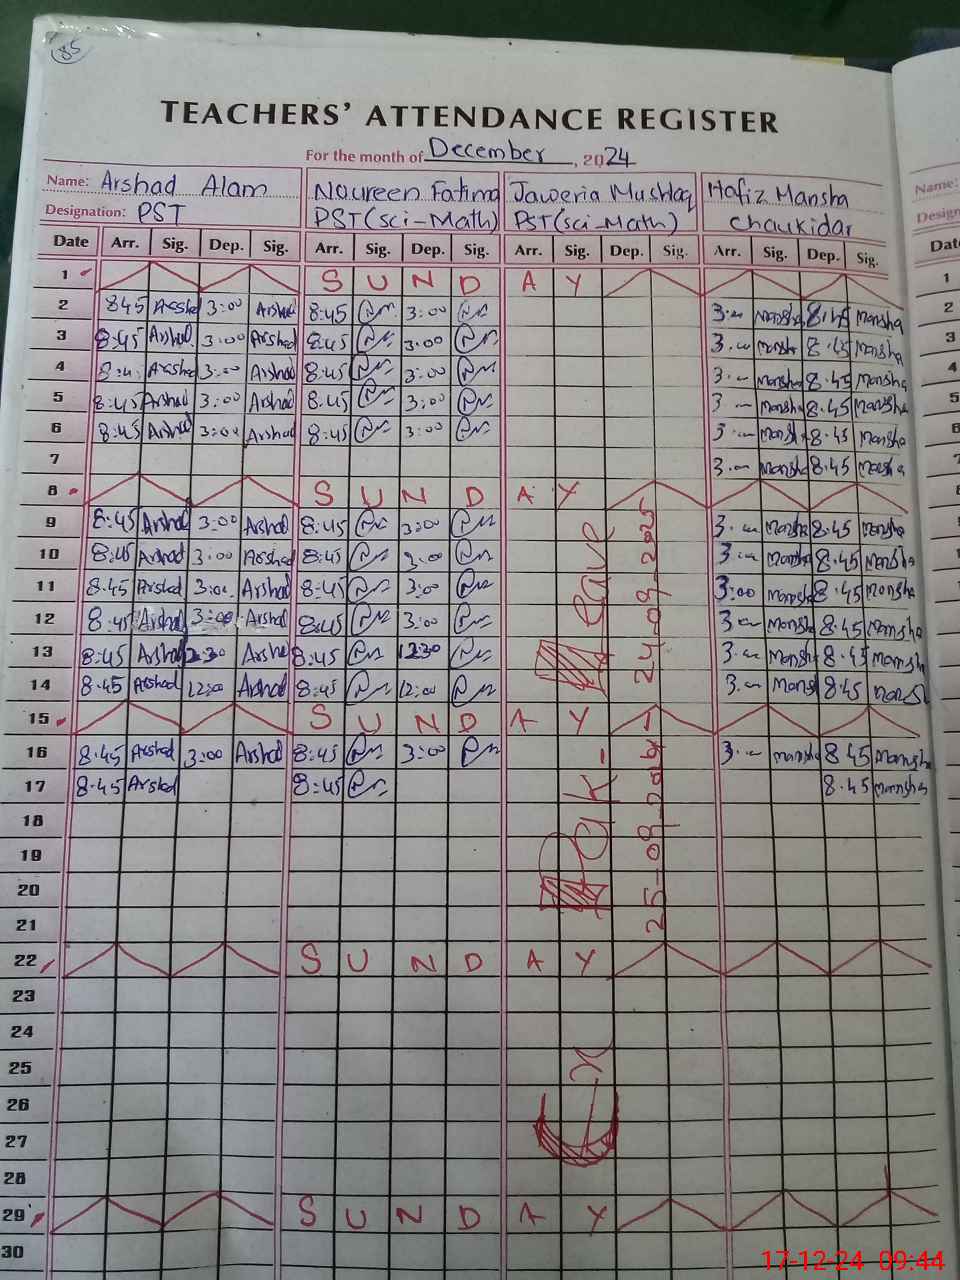 85
TEACHERS' ATTENDANCE REGISTER
For the month of December, 2024
Name: Arshad Alam Noureen Fatima Jaweria Mushtaq Hafiz Mansha Name:
Designation: PST PST(sci-Math) PST(sci-Math) Chaukidar
Date Arr. Sig. Dep. Sig. Arr. Sig. Dep. Sig. Arr. Sig. Dep. Sig. Arr. Sig. Dep. Sig.
1 S U N D A Y 1
2 8:45 Arshad 3:00 Arshad 8:45 3:00 3.— Mansha 8.45 Mansha 2
3 8:45 Arshad 3:00 Arshad 8:45 3:00 3.— Mansha 8.45 Mansha 3
4 Arshad 3:00 Arshad 8:45 3:00 3.— Mansha 8.45 Mansha 4
5 8:45 Arshad 3:00 Arshad 8:45 3:00 3.— Mansha 8.45 Mansha 5
6 8:45 Arshad 3:00 Arshad 8:45 3:00 3.— Mansha 8.45 Mansha 6
7 3.— Mansha 8.45 Mansha 7
8 S U N D A Y 8
9 8:45 Arshad 3:00 Arshad 8:45 3:00 3.— Mansha 8.45 Mansha 9
10 8:45 Arshad 3:00 Arshad 8:45 3:00 3.— Mansha 8.45 Mansha 10
11 8.45 Arshad 3:00 Arshad 8:45 3:00 3:00 Mansha 8.45 Mansha 11
12 8:45 Arshad 3:00 Arshad 8:45 3:00 3.— Mansha 8.45 Mansha 12
13 8:45 Arshad 12:30 Arshad 8:45 12:30 3.— Mansha 8.45 Mansha 13
14 8.45 Arshad 12:00 Arshad 8:45 12:00 3.— Mansha 8.45 Mansha 14
15 S U N D A Y 15
16 8.45 Arshad 3:00 Arshad 8:45 3:00 3.— Mansha 8.45 Mansha 16
17 8.45 Arshad 8:45 8.45 Mansha 17
18 18
19 19
20 20
21 21
22 S U N D A Y 22
23 23
24 24
25 25
26 26
27 27
28 28
29 S U N D A Y 29
30 30
Ex Pak- Leave
25-09-2024 24-09-2025
17-12-24 09:44